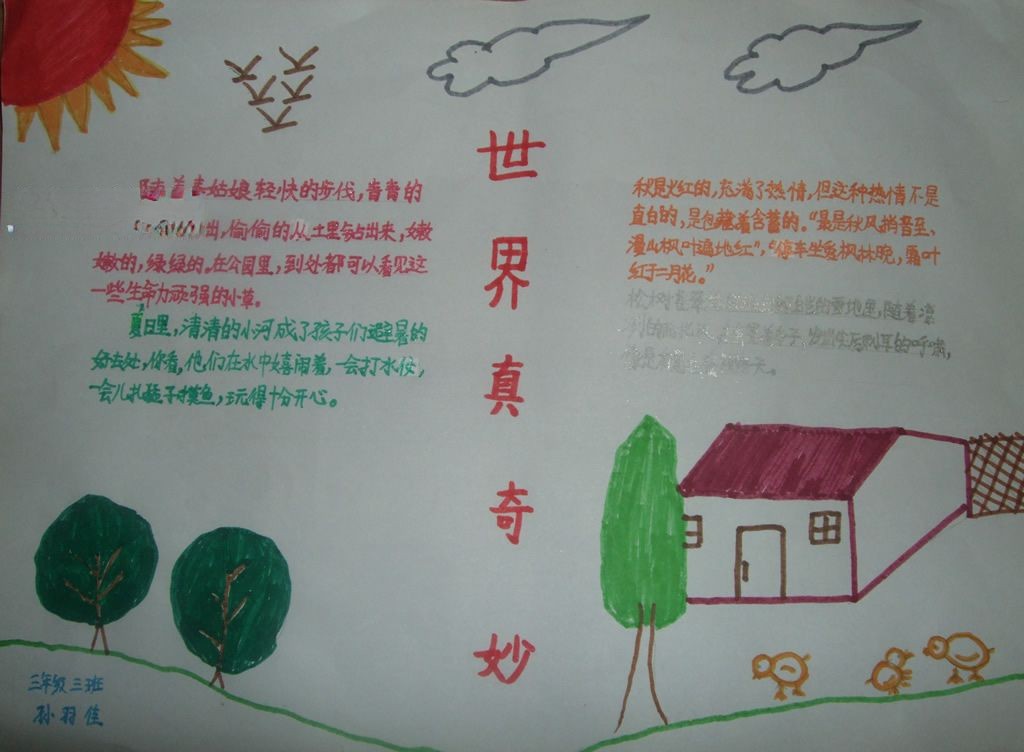 世界真奇妙
随着春姑娘轻快的步伐，青青的
出，偷偷的从土里钻出来，嫩
嫩的，绿绿的。在公园里，到处都可以看见这
一些生命力顽强的小草。
夏日里，清清的小河成了孩子们避暑的
好去处，你看，他们在水中嬉闹着，一会打水仗，
一会儿扎猛子摸鱼，玩得十分开心。
秋是火红的，充满了热情，但这种热情不是
直白的，是包含着含蓄的。“最是秋风捎音至，
漫山枫叶遍地红”，“停车坐爱枫林晚，霜叶
红于二月花。”
松树直 的雪地里，随着凛
冽的 的呼啸，
天。
三年级三班
孙羽佳